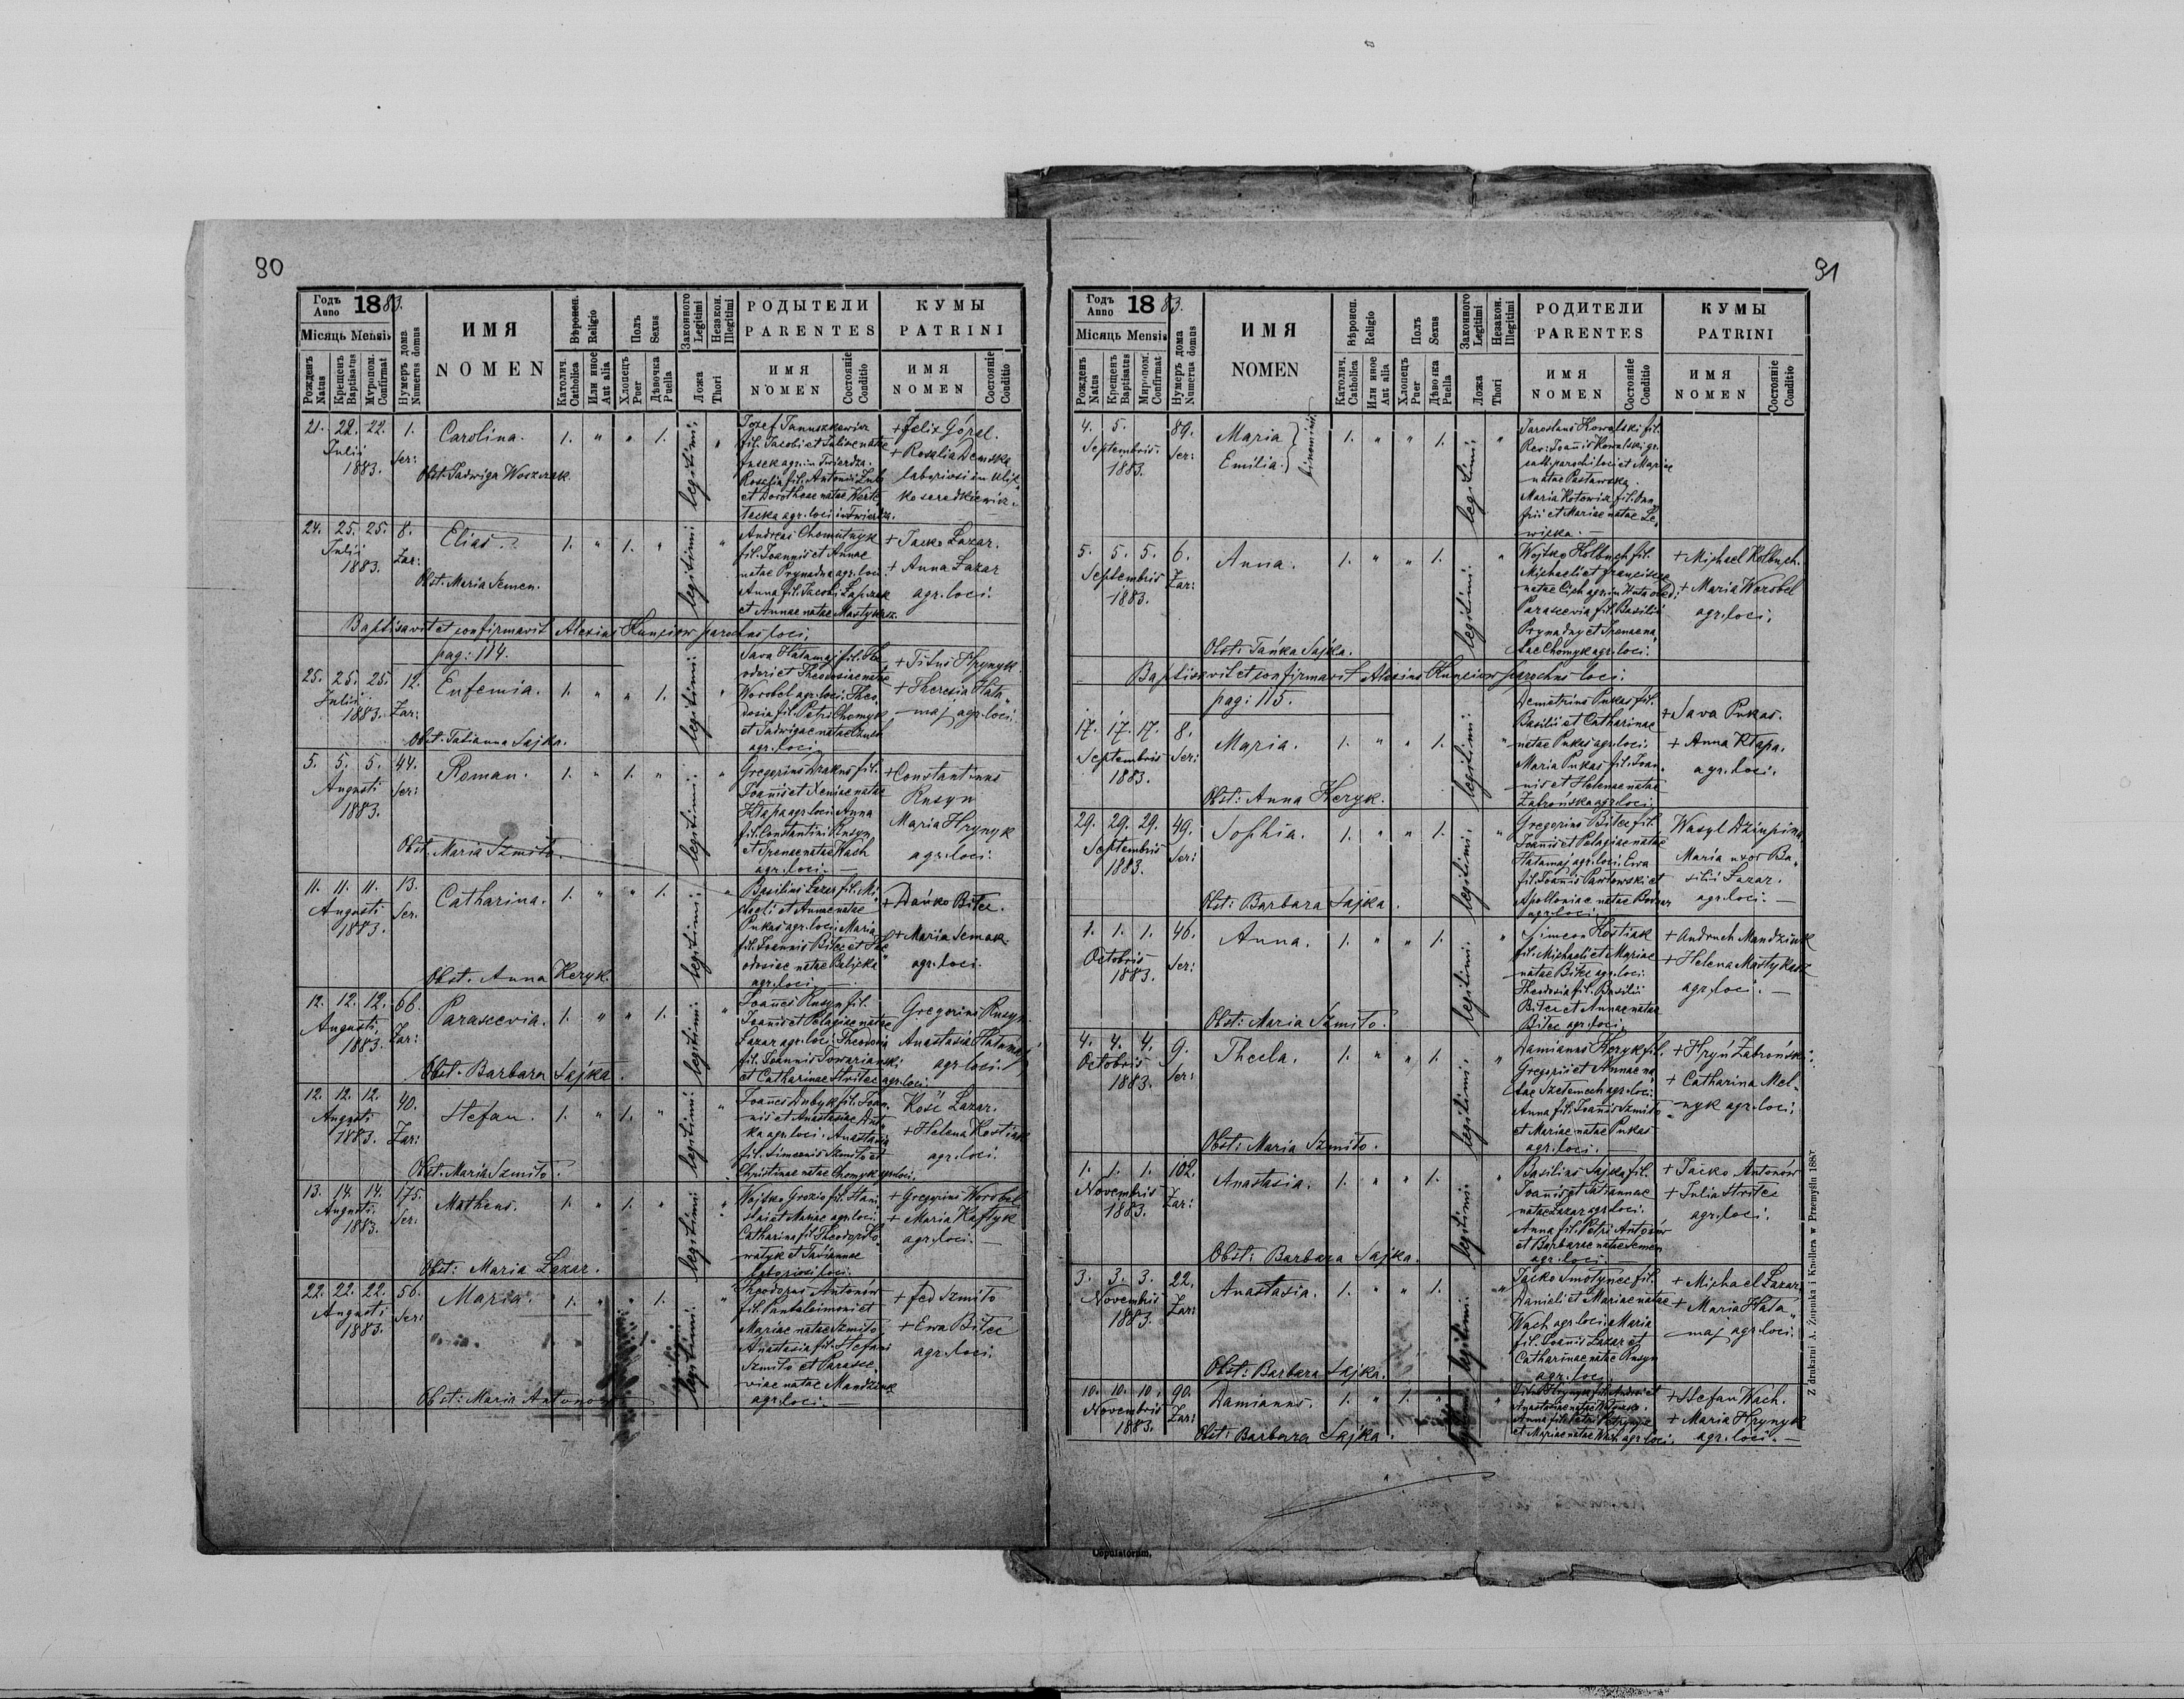 90
Годъ Anno 1883.
Місяць Mensis
Рожденъ Natus
Крещенъ Baptisatus
Мѵропом. Confirmat
Нумеръ дома Numerus domus
ИМЯ
NOMEN
Вѣроисп. Religio
Католич. Catholica
Или иное Aut alia
Полъ Sexus
Хлопецъ Puer
Дѣвочка Puella
Законного Legitimi
Незакон. Illegitimi
Ложа Thori
РОДЫТЕЛИ
PARENTES
ИМЯ NOMEN
Состояніе Conditio
КУМЫ
PATRINI
ИМЯ NOMEN
Состояніе Conditio
21. 22. 22. 1.
Julii
1883.
Ser:
Carolina.
1. " " 1.
legitimi.
Obst. Jadwiga Woszczak
Jozef Januszkiewicz
fil. Jacobi et Juliae natae
agr. in Twierdza.
Rosalia fil. Antonii
et Dorotheae natae
agr. loci in Twierdza.
+ Felix Góral.
+ Rosalia Demska
laboriosi in
24. 25. 25. 8.
Julii
1883.
Zar:
Elias.
1. " 1. "
legitimi
Obst. Maria Semen.
Andreas Chomutnyk
fil. Joannis et Annae
natae Prynadna agr. loci.
Anna fil. Jacobi Łapczak
et Annae natae Mastykasz.
+ Jacko Lazar.
+ Anna Lazar
agr. loci.
Baptisavit et confirmavit Alexius Kunciow parochus loci.
pag: 114.
25. 25. 25. 12.
Julii
1883.
Zar:
Eufemia.
1. " " 1.
legitimi
Obst. Tatianna Sajka.
Sava Hatamaj fil. The
odori et Theodosiae natae
Worobel agr. loci, Theo
dosia fil. Petri Chomyk
et Jadwigae natae
agr. loci
+ Titus Hrynyk
+ Theresia Hata
maj agr. loci.
5. 5. 5. 44.
Augusti
1883.
Ser:
Roman.
1. " 1. "
legitimi
Obst. Maria Szmiło.
Gregorius Drakus fil.
Joannis et Xeniae natae
Kłapa agr. loci Anna
fil. Constantini Rusyn
et Irenae natae Wach
agr. loci.
+ Constantinus
Rusyn
Maria Hrynyk
agr. loci.
11. 11. 11. 13.
Augusti
1883.
Ser.
Catharina.
1. " " 1.
legitimi
Obst. Anna Keryk.
Basilius Lazar fil. Mi
chaeli et Annae natae
Pukas agr. loci Maria
fil. Joannis Bitcz et The
odosiae natae
agr. loci.
+ Dańko Bitcz.
+ Maria Semak.
agr. loci.
12. 12. 12. 66.
Augusti
1883.
Zar:
Parascevia.
1. " " 1.
legitimi
Obst. Barbara Sajka.
Joannes Rusyn fil.
Joannis et Pelagiae natae
Lazar agr. loci. Theodosia
fil. Joannis Towarianski
et Catharinae Stritec agr. loci
Gregorius Rusyn.
Anastasia Hatamaj
agr. loci.
12. 12. 12. 40.
Augusti
1883.
Zar:
Stefan.
1. " 1. "
legitimi
Obst. Maria Szmiło.
Joannes fil. Joan
nis et Anastasiae
agr. loci. Anastasia
fil. Simeonis Szmiło et
Christinae natae Chomyk agr. loci.
Kość Lazar.
+ Helena Kostiak
agr. loci.
13. 14. 14. 175.
Augusti
1883.
Ser:
Matheus.
1. " 1. "
legitimi
Obst: Maria Lazar.
Wojtko fil. Stani
slai et Mariae agr. loci.
Catharina fil. Theodori Ko
watyk et Tatiannae
laboriosi loci.
+ Gregorius Worobel
+ Maria Kaftyk
agr. loci.
22. 22. 22. 56.
Augusti
1883.
Ser:
Maria.
1. " " 1.
legitimi
Obst: Maria Antonów
Theodorus Antonów
fil. Pantaleimoni et
Mariae natae Szmiło.
Anastasia fil. Stefani
Szmiło et Parasce
viae natae Mandziuk
agr. loci.
+ Fed Szmiło
+ Ewa Bitcz
agr. loci.
91
Годъ Anno 1883.
Місяць Mensis
Рожденъ Natus
Крещенъ Baptisatus
Мѵропом. Confirmat
Нумеръ дома Numerus domus
ИМЯ
NOMEN
Вѣроисп. Religio
Католич. Catholica
Или иное Aut alia
Полъ Sexus
Хлопецъ Puer
Дѣвочка Puella
Законного Legitimi
Незакон. Illegitimi
Ложа Thori
РОДИТЕЛИ
PARENTES
ИМЯ NOMEN
Состояніе Conditio
КУМЫ
PATRINI
ИМЯ NOMEN
Состояніе Conditio
4. 5. 89.
Septembris
1883.
Ser:
Maria
Emilia.
binominis.
1. " " 1.
legitimi
Jaroslaus Kowalski fil.
Rev: Joannis Kowalski gr.
cath. parochi loci et Mariae
natae Pasławska.
Maria Kotowicz fil.
et Mariae natae Le
wicka.
5. 5. 5. 6.
Septembris
1883.
Zar:
Anna.
1. " " 1.
legitimi
Obst: Tańka Sajka.
Wojtko Kolbuch fil.
Michaeli et Franciscae
natae Cich agr. in Huta
Parascevia fil. Basilii
Prynadny et Irenae na
tae Chomyk agr. loci.
+ Michael Kolbuch.
+ Maria Worobel
agr. loci.
Baptisavit et confirmavit Alexius Kunciow parochus loci.
pag: 115.
17. 17. 17. 8.
Septembris
1883.
Ser:
Maria.
1. " " 1.
legitimi
Obst: Anna Keryk.
Demetrius Pukas fil.
Basilii et Catharinae
natae Pukas agr. loci.
Maria Pukas fil. Joan
nis et Helenae natae
Zabrońska agr. loci.
+ Sava Pukas.
+ Anna Kłapa.
agr. loci.
29. 29. 29. 49.
Septembris
1883.
Ser:
Sophia.
1. " " 1.
legitimi
Obst: Barbara Sajka.
Gregorius Bitcz fil.
Joannis et Pelagiae natae
Hatamaj agr. loci. Ewa
fil. Joannis Pawłowski et
Apolloniae natae
agr. loci
Wasyl
Maria uxor Ba
silii Lazar.
agr. loci.
1. 1. 1. 46.
Octobris
1883.
Ser:
Anna.
1. " " 1.
legitimi
Obst: Maria Szmiło.
Simeon Kostiak
fil. Michaeli et Mariae
natae Bitcz agr. loci.
Theodosia fil. Basilii
Bitcz et Annae natae
Bitcz agr. loci.
+ Andruch Mandziuk
+ Helena Mastykasz
agr. loci.
4. 4. 4. 9.
Octobris
1883.
Ser:
Thecla.
1. " " 1.
legitimi
Obst: Maria Szmiło.
Damianus Keryk fil.
Gregorii et Annae na
tae Szeremeth agr. loci.
Anna fil. Joannis Szmiło
et Mariae natae Pukas
agr. loci.
+ Hryń Zabroński.
+ Catharina Mel
nyk agr. loci.
1. 1. 1. 102.
Novembris
1883.
Zar:
Anastasia.
1. " " 1.
legitimi
Obst: Barbara Sajka.
Basilius Sajka fil.
Joannis et Tatiannae
natae Lazar agr. loci.
Anna fil. Petri Antonów
et Barbarae natae Semen
agr. loci.
+ Jacko Antonów
+ Julia Stritec
agr. loci.
3. 3. 3. 22.
Novembris
1883.
Zar:
Anastasia.
1. " " 1.
legitimi
Obst: Barbara Sajka.
Jacko Smotyncz fil.
Danieli et Mariae natae
Wach agr. loci. Maria
fil. Joannis Lazar et
Catharinae natae Rusyn
agr. loci
+ Michael Lazar
+ Maria Hata
maj agr. loci.
10. 10. 10. 90.
Novembris
1883.
Zar:
Damianus.
1. " 1. "
legitimi
Obst: Barbara Sajka.
Hrynyk fil. Andrei et
Anastasiae natae
Anna fil. Petri
et Mariae natae Wach agr. loci.
+ Stefan Wach.
+ Maria Hrynyk
agr. loci.
Z drukarni A. Żupnika i Knollera w Przemyślu 188
Copulatorum,